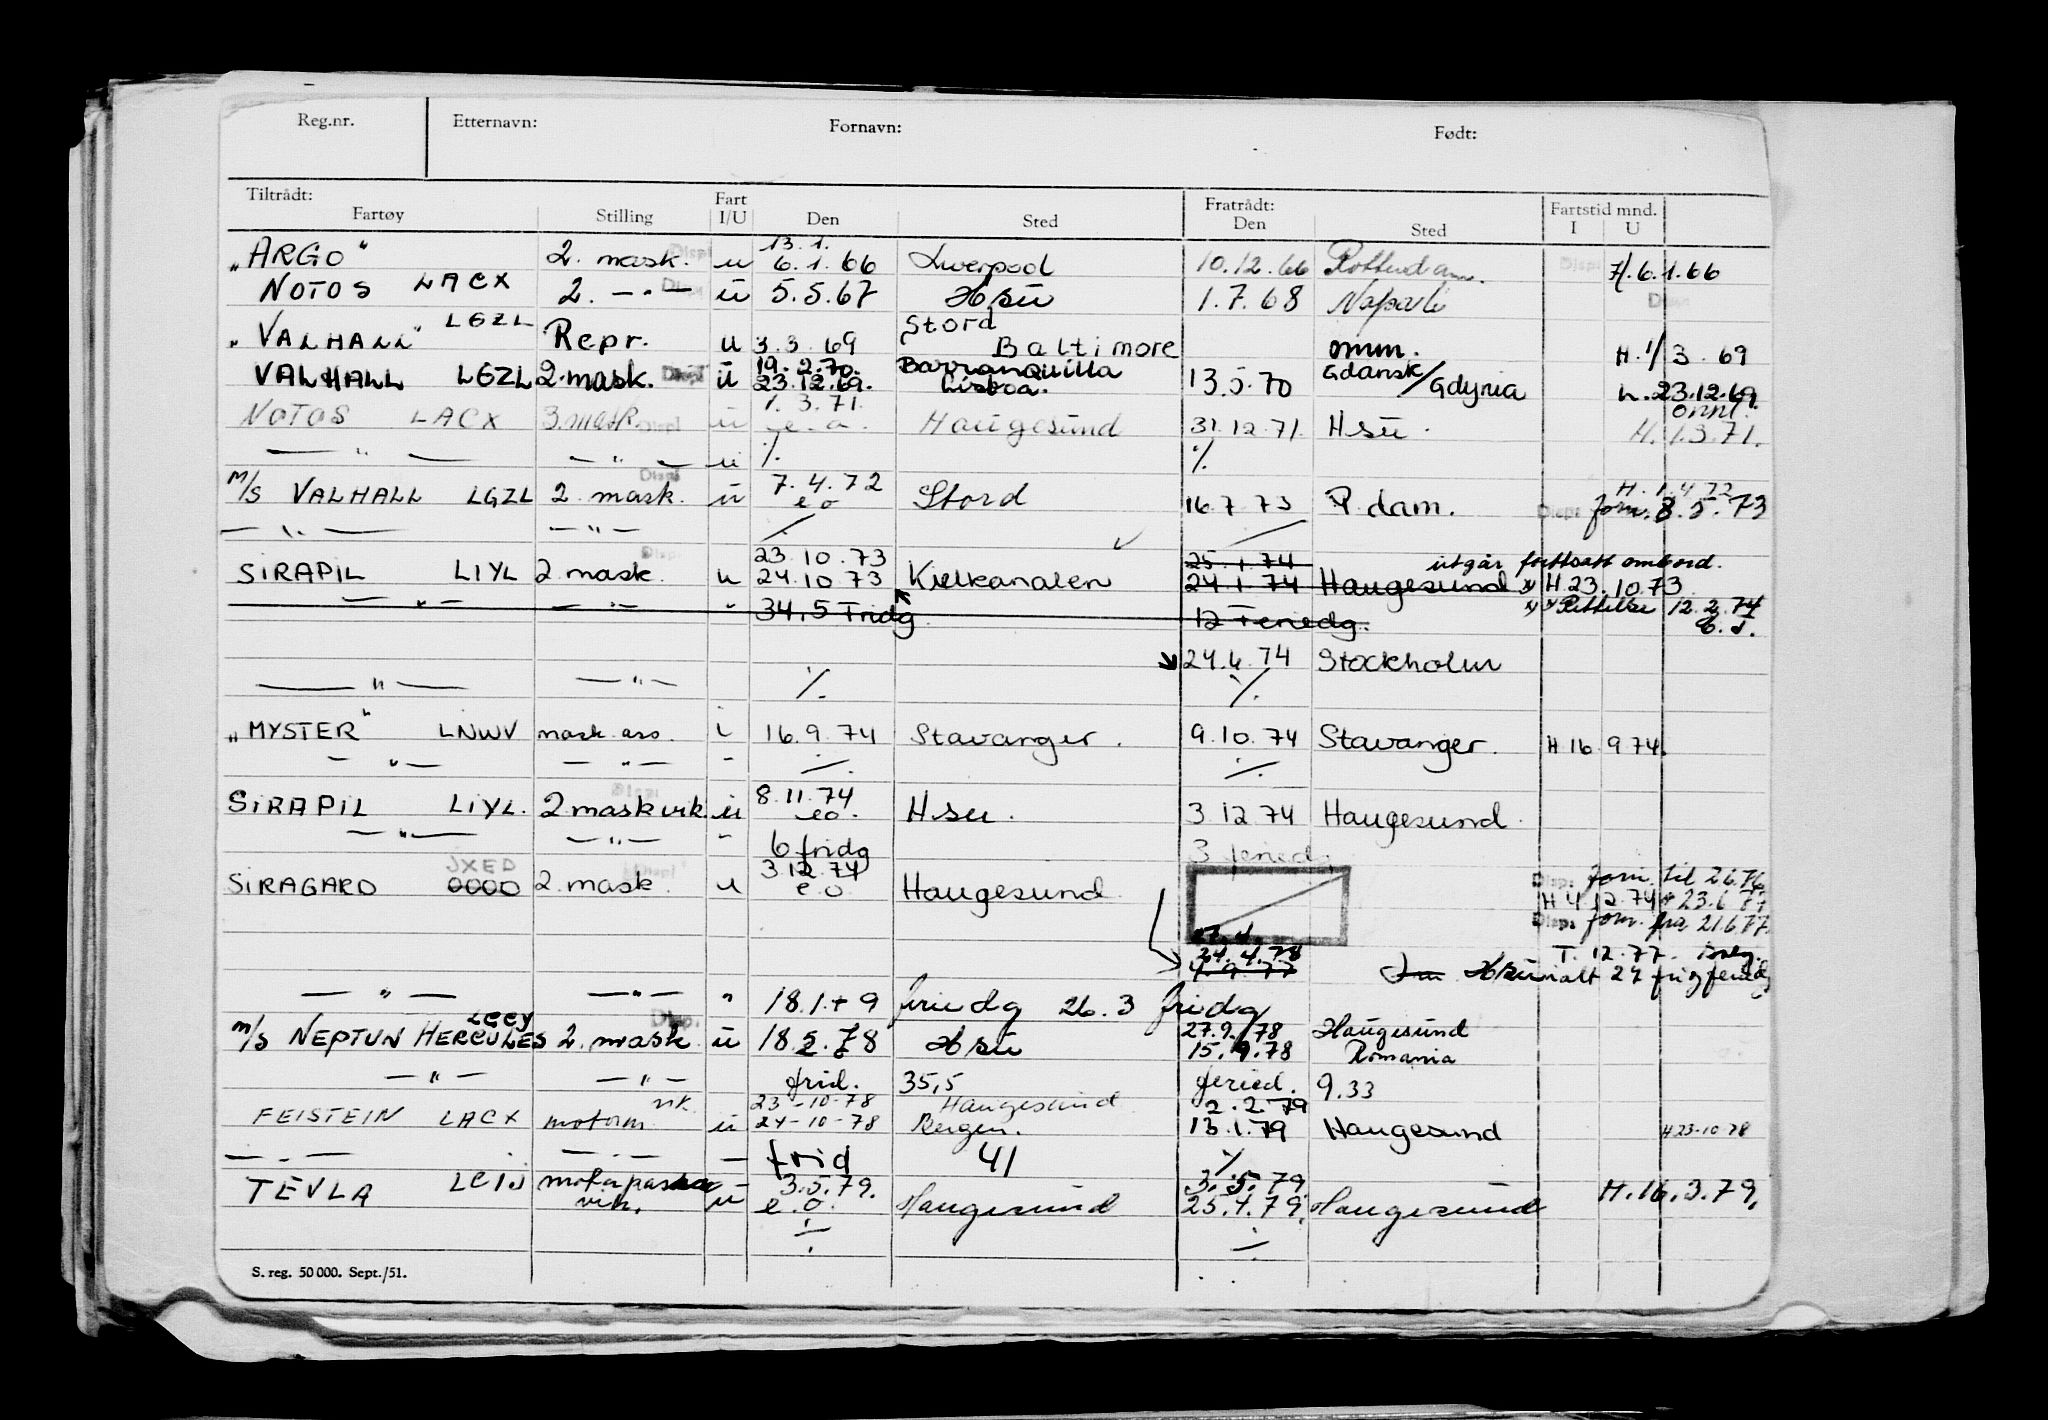 Reg.nr. Etternavn: Fornavn: Født:
Tiltrådt: Fartøy Stilling Fart I/U Den Sted Fratrådt: Den Sted Fartstid mnd. I U
13.1.
„ARGO" 2. mask. u 6.1.66 Liverpool 10.12.66 Rotterdam H.6.1.66
NOTOS LACX 2. —"— ü 5.5.67 Hsü 1.7.68 Napoli
Stord
„VALHALL" LGZL Repr. u 3.3.69 Baltimore omm. H.1/3.69
19.2.70. Barranquilla Gdansk/
VALHALL LGZL 2.mask. ü 23.12.69. Lisboa. 13.5.70 Gdynia H.23.12.69.
1.3.71. omm.
NOTOS LACX 3.mask ü e.o. Haugesund 31.12.71. Hsü. H.1.3.71.
—"— —"— u ./. ./.
7.4.72 H.1.4.72
M/S VALHALL LGZL 2. mask. ü eo Stord 16.7.73 R.dam. Disp: forn. 8.5.73
—"— —"— / /
23.10.73 25.1.74 utgår fortsatt ombord.
SIRAPIL LIYL 2 mask. u 24.10.73 Kielkanalen 24.1.74 Haugesund x) H 23.10.73
—"— —"— " 34,5 Fridg 12 Feriedg. x) Rettelse 12.2.74
24.6.74 Stockholm
—"— —"— ./. ./.
„MYSTER" LNWV mask. ass. i 16.9.74 Stavanger. 9.10.74 Stavanger. H 16.9.74.
—"— —"— - ./. ./.
8.11.74
SIRAPIL LIYL. 2 mask vik. ü eo. H.su. 3.12.74 Haugesund.
—"— —"— " 6 fridg 3 feried.
JXED 3.12.74 Disp: forn. til 2.6.76
SIRAGARD OOOO 2. mask. u eo Haugesund. H 4.12.74
Disp: forn. fra 21.6.77.
24.4.78 T. 12.77.
4.9.77
—"— —"— " 18.1 + 9 feriedg 26.3 fridg
LCCY 27.9/78 Haugesund
M/S NEPTUN HERCULES 2. mask. ü 18.5.78 Hsü 15.9.78 Romania
—"— —"— frid. 35,5 feried. 9.33
vik. 23-10-78 Haugesund 2.2.79
FEISTEIN LACX motorm ü 24-10-78 Bergen. 13.1.79 Haugesund H 23-10-78
—"— —"— — frid 41 ./.
3.5.79. 3.5.79.
TEVLA LCIJ motorpasser vik. ü e.o. Haugesund 25.4.79. Haugesund H.16.3.79.
./. ./.
S. reg. 50 000. Sept./51.